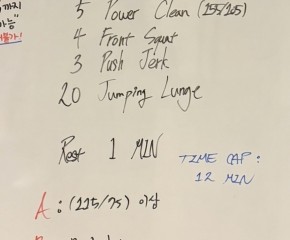 까지
가능"
5 Power Clean (155/105)
4 Front Squat
3 Push Jerk
20 Jumping Lunge
Rest 1 MIN
TIME CAP :
12 MIN
A : (115/75) 이상